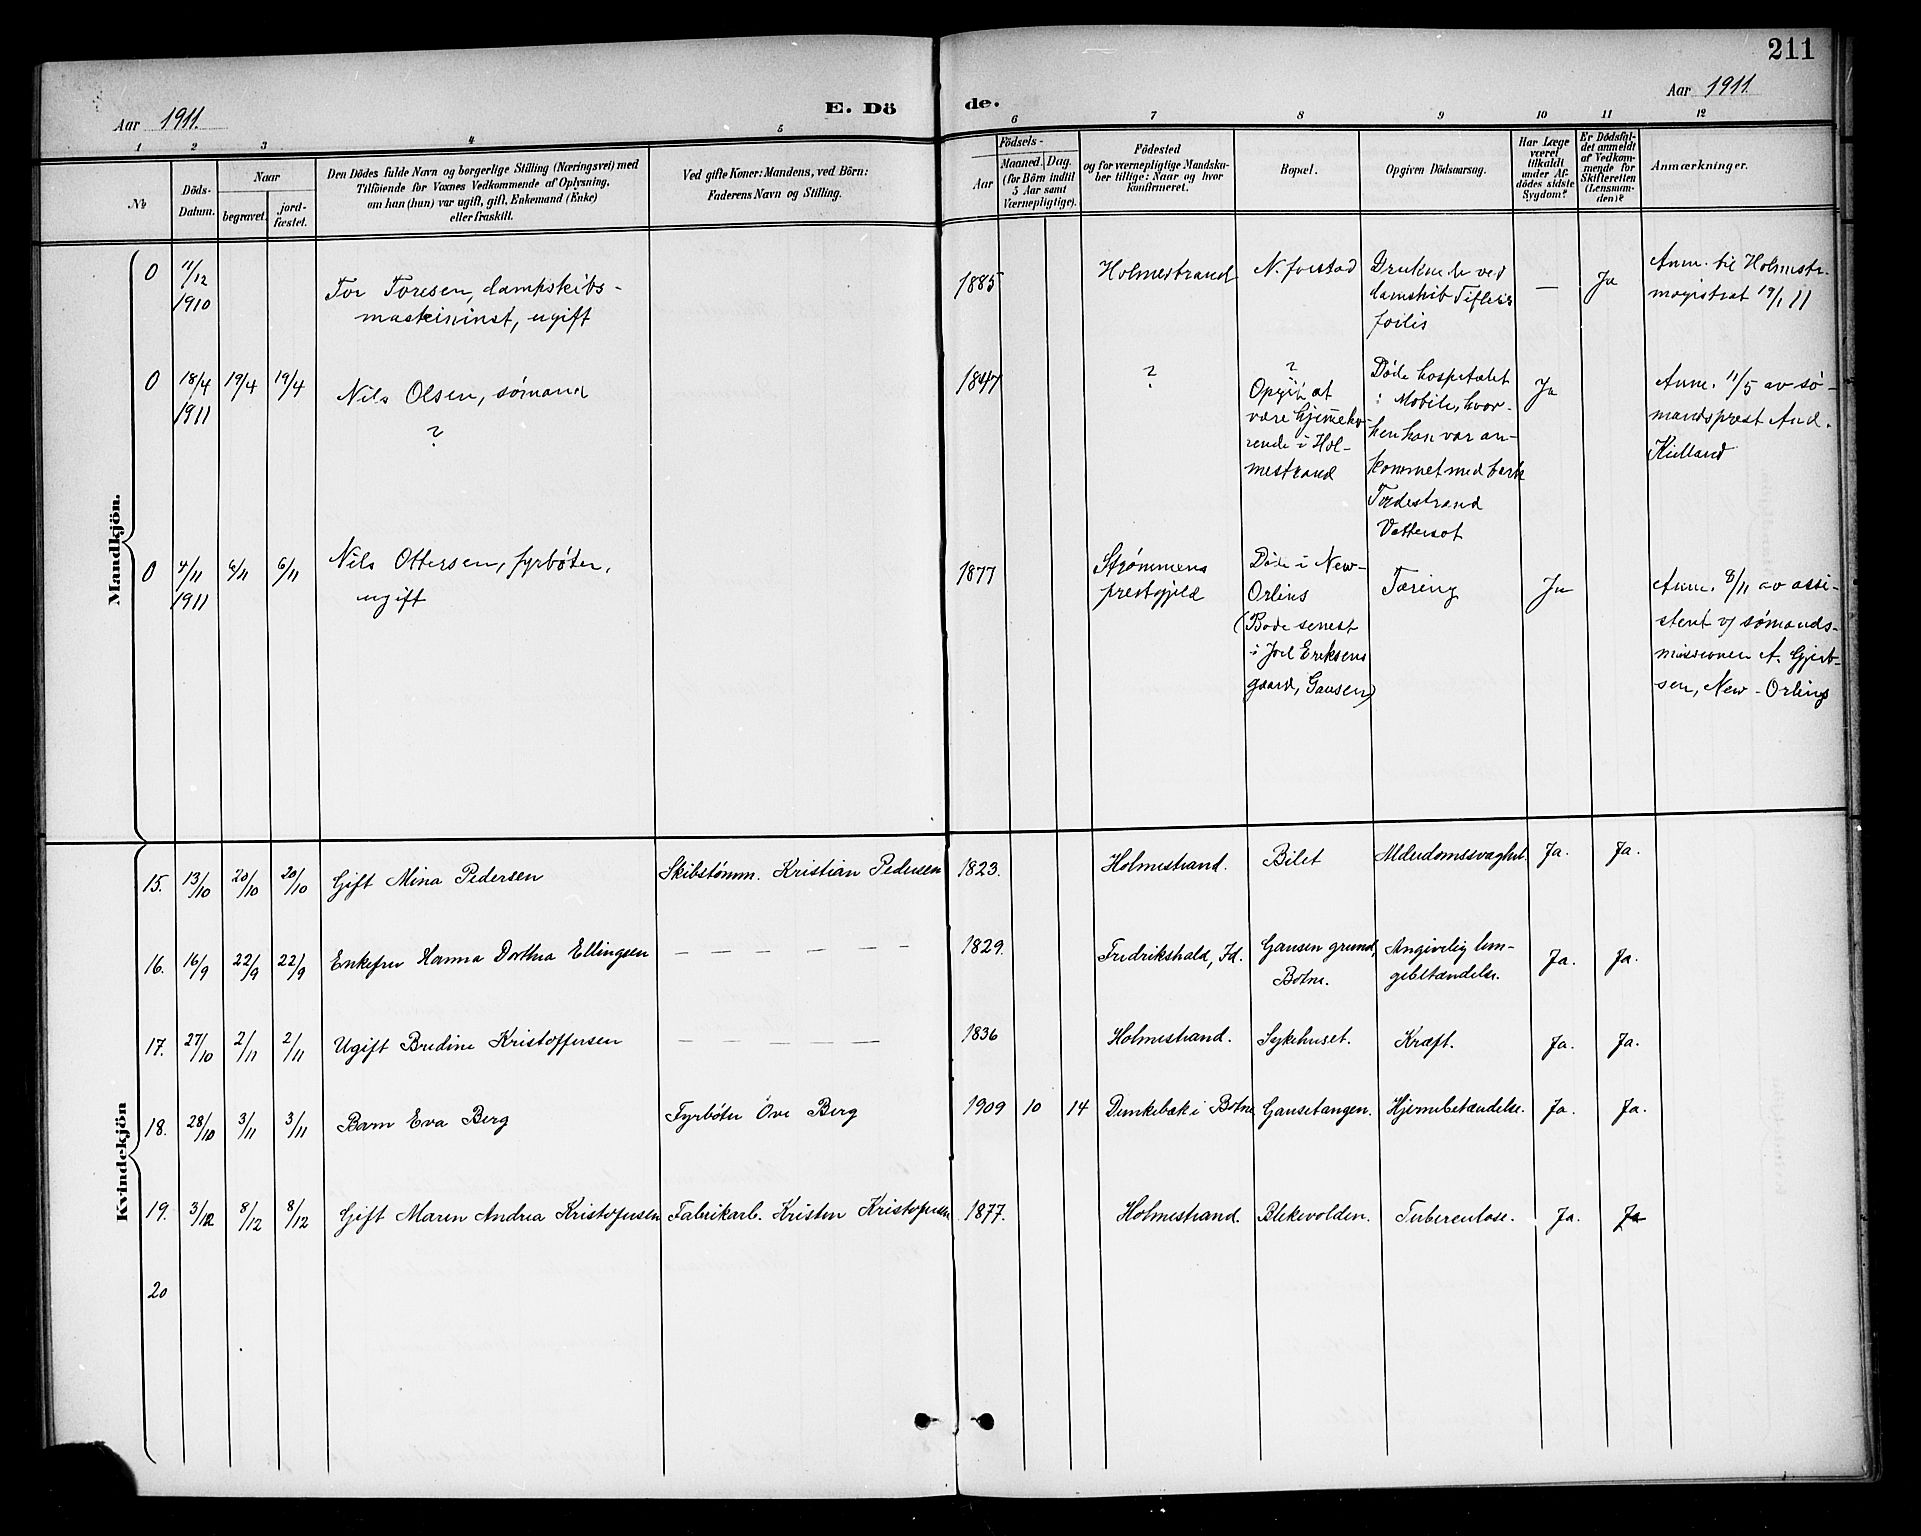 211
Aar 1911.
E. Dö
de.
Aar 1911.
1
2
3
4
5
6
7
8
9
10
11
12
№
Döds-
Datum.
Naar
begravet.
jord-
fæstet.
Den Dödes fulde Navn og borgerlige Stilling (Næringsvei) med
Tilföiende for Voxnes Vedkommende af Oplysning,
om han (hun) var ugift, gift, Enkemand (Enke)
eller fraskilt.
Ved gifte Koner: Mandens, ved Börn:
Faderens Navn og Stilling.
Födsels-
Aar
Maaned.
Dag.
(for Börn indtil
5 Aar samt
Værnepligtige).
Födested
og for værnepligtige Mandsku-
ber tillige: Naar og hvor
konfirmeret.
Bopæl.
Opgiven Dödsaarsag.
Har Læge
været
tilkaldt
under Af-
dödes sidste
Sygdom?
Er Dödsfal-
det anmeldt
af Vedkom-
mende for
Skifteretten
(Lensman-
den)?
Anmærkninger.
Mandkjön.
0
11/12
1910
Tor Toresen, dampskibs-
maskininst, ugift
1885
Holmestrand
N. forstad
Druknede ved
damskib
forlis
—
Ja
Anm. til Holmestr.
magistrat 19/1 11
0
18/4
1911
19/4
19/4
Nils Olsen, sømand
?
1847
?
?
Opgit at
være hjemmehø-
rende i Hol-
mestrand
Døde hospitalet
i Mobile, hvor-
hen han var an-
kommet med bark
Tordestrand
Vattersot
Ja
Anm. 11/5 av sø-
mandsprest And.
Kielland
0
4/11
1911
6/11
6/11
Nils Ottersen, fyrbøter,
ugift
1877
Strømmens
prestegjeld
Døde i New-
Orlins
(Bode senest
i Joel Eriksens
gaard, Gausen)
Tæring
Ja
Anm. 8/11 av assi-
stent v/ sømands-
missionen A. Gjert-
sen, New-Orlings
Kvindekjön
15.
13/10
20/10
20/10
Gift Mina Pedersen
Skibstømm. Kristian Pedersen
1823.
Holmestrand.
Bilet
Alderdomssvaghet.
Ja.
Ja.
16.
16/9
22/9
22/9
Enkefru Hanna Dorthea Ellingsen
— — — — —
1829.
Fredrikshald, Id.
Gausen grund,
Botne.
Angivelig lun-
gebetændelse.
Ja.
Ja.
17.
27/10
2/11
2/11
Ugift Bredine Kristoffersen
— — — — —
1836
Holmestrand.
Sykehuset.
Kræft.
Ja.
Ja.
18.
28/10
3/11
3/11
Barn Eva Berg
Fyrbøter Ove Berg
1909
10
14
Dunkebæk i Botne
Gausetangen.
Hjernebetændelse.
Ja.
Ja.
19.
3/12
8/12
8/12
Gift Maren Andrea Kristofersen
Fabrikarb. Kristen Kristofersen
1877.
Holmestrand.
Blekevolden.
Tuberculose.
Ja.
Ja
20